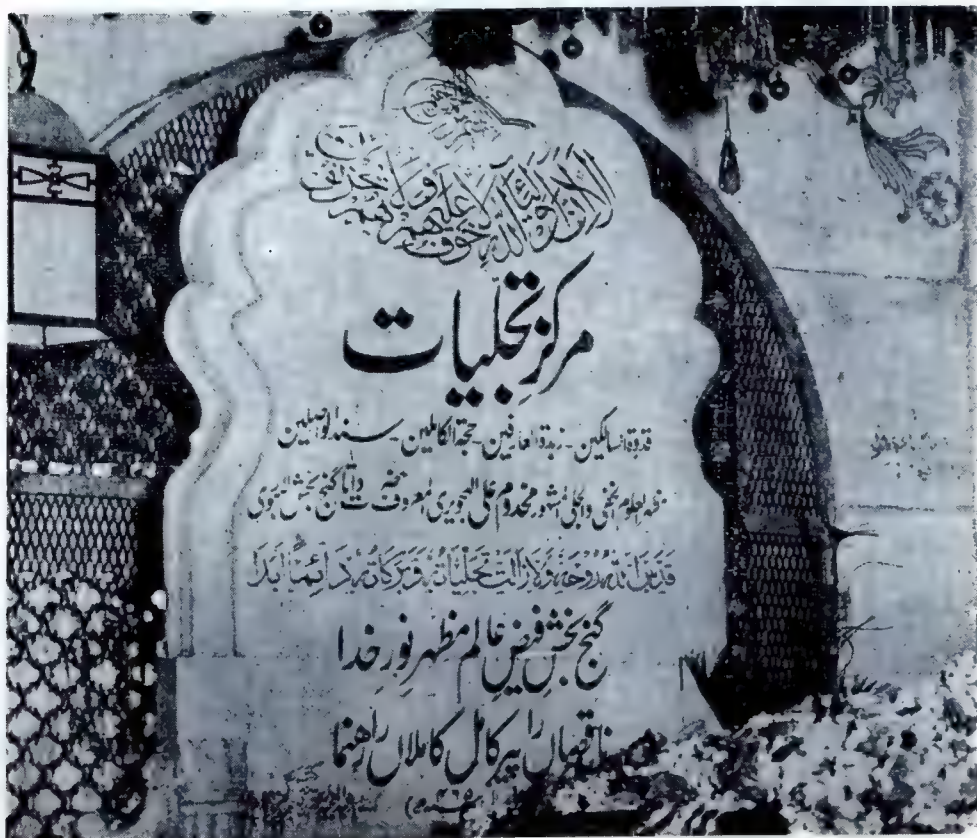 الا ان اولیاء الله لا خوف علیهم ولا هم یحزنون
مرکز تجلیات
قدوة السالکین - زبدة العارفین - حجة الکاملین - سند الواصلین
العلوم الخفی والجلی المشهور مخدوم علی الهجویری المعروف حضرت داتا گنج بخش
قدس الله روحه ولا زالت تجلیاته و برکاته دائما ابدا
گنج بخش فیض عالم مظهر نور خدا
ناقصاں را پیر کامل کاملاں را رہنما